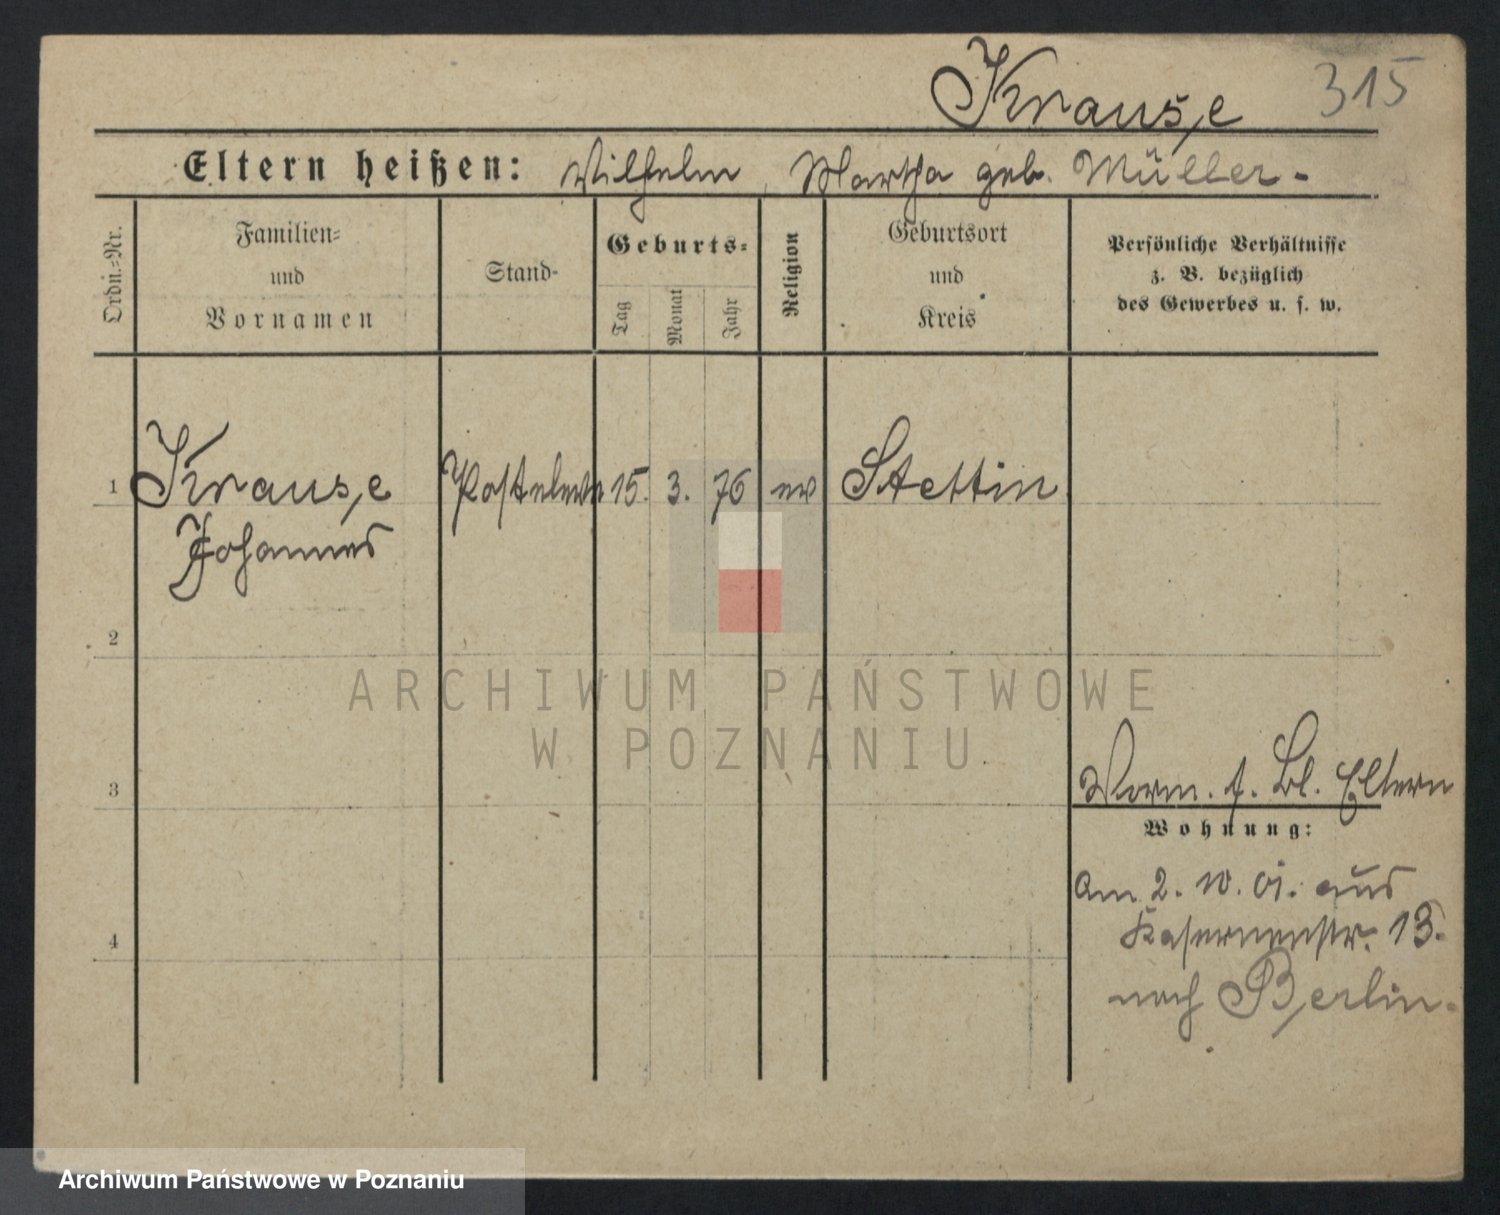 Krause 315
Eltern heißen: Wilhelm, Martha geb. Müller.
Ordn.-Nr.
Familien-
und
Vornamen
Stand
Geburts-
Tag
Monat
Jahr
Religion
Geburtsort
und
Kreis
Persönliche Verhältnisse
z. B. bezüglich
des Gewerbes u. s. w.
1 Krause 15. 3. 76 ev Stettin
Johannes
2
ARCHIWUM PAŃSTWOWE
W POZNANIU
3
Vorm. f. Bl. Eltern
Wohnung:
Am 2. 10. 01. aus
4
Kasernenstr. 13.
nach Berlin.
Archiwum Państwowe w Poznaniu